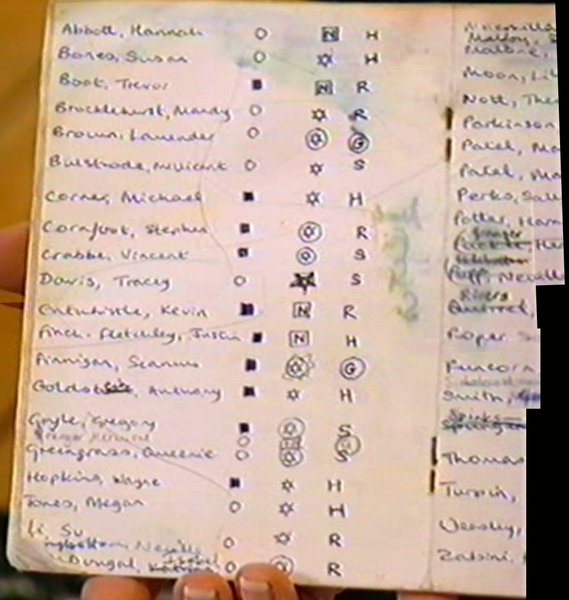 Abbott, Hannah ○ N H
Bones, Susan ○ ✡ H
Boot, Trevor ■ N R
Brocklehurst, Mandy ○ ✡ R
Brown, Lavender ○ ✡ G
Bulstrode, Millicent ○ ✡ S
Corner, Michael ■ ✡ H
Cornfoot, Stephen ■ ✡ R
Crabbe, Vincent ■ ✡ S
Davis, Tracey ○ ★ S
Entwhistle, Kevin ■ N R
Finch-Fletchley, Justin ■ N H
Finnigan, Seamus ■ ✡ G
Anthony ■ ✡ H
Goyle, Gregory ■ ✡ S
Greengrass, Queenie ○ ✡ S
Hopkins, Wayne ■ ✡ H
Jones, Megan ○ ✡ H
Li, Su ○ ✡ R
Neville
Dougal, ○ ✡ R
Malfoy,
Malone,
Moon, Li
Nott, The
Parkinson
Patel, Ma
Patel, Ma
Perks, Sall
Potter, Harr
Granger
Puff, Neville
Rivers
Quirrel,
Roper, S
Runcorn
Smith,
Spinks
Thomas
Turpin,
Weasley,
Zabini,